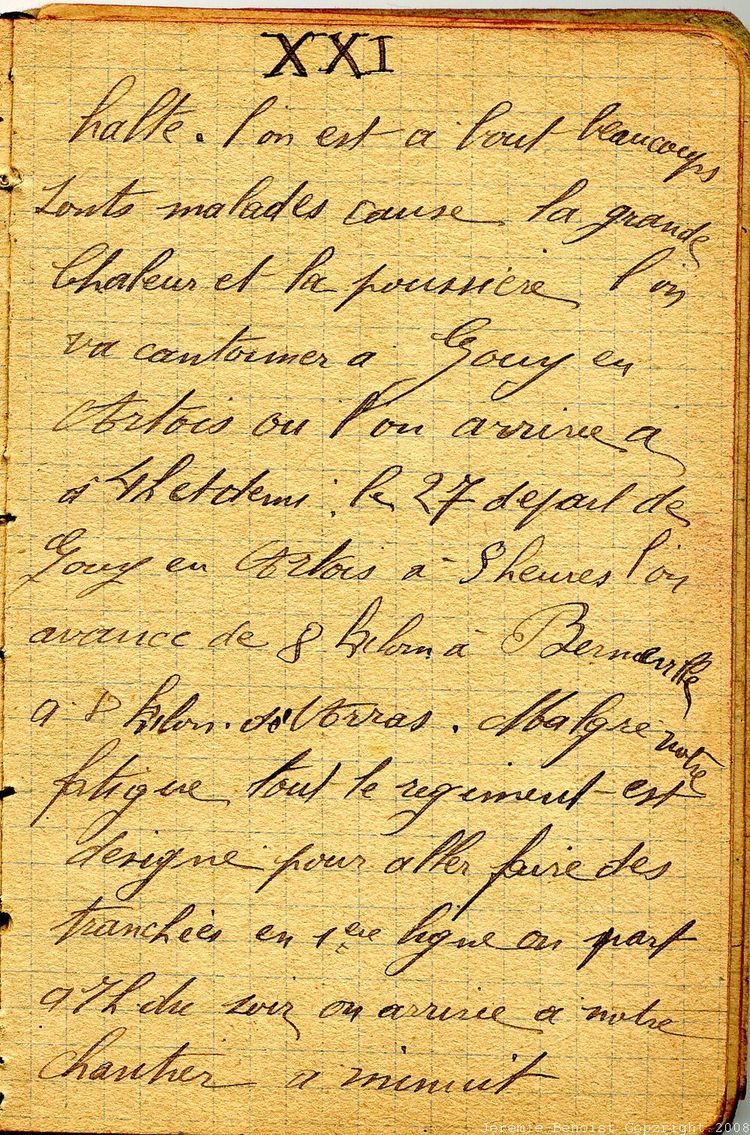 XXI
halte. l'on est a bout beaucoups
sonts malades cause la grande
Chaleur et la poussière l'on
va cantonner a Gouy en
Artois ou l'on arrive a
a 4h et demi. le 27 depart de
Gouy en Artois a 8 heures l'on
avance de 8 kilom a Berneville
a 8 kilom. de Arras. Malgre notre
fatigue tout le regiment est
designe pour aller faire des
tranchées en 1ere ligne on part
a 7h du soir on arrive a notre
chantier a minuit
Jeremie Benoist Copyright 2008